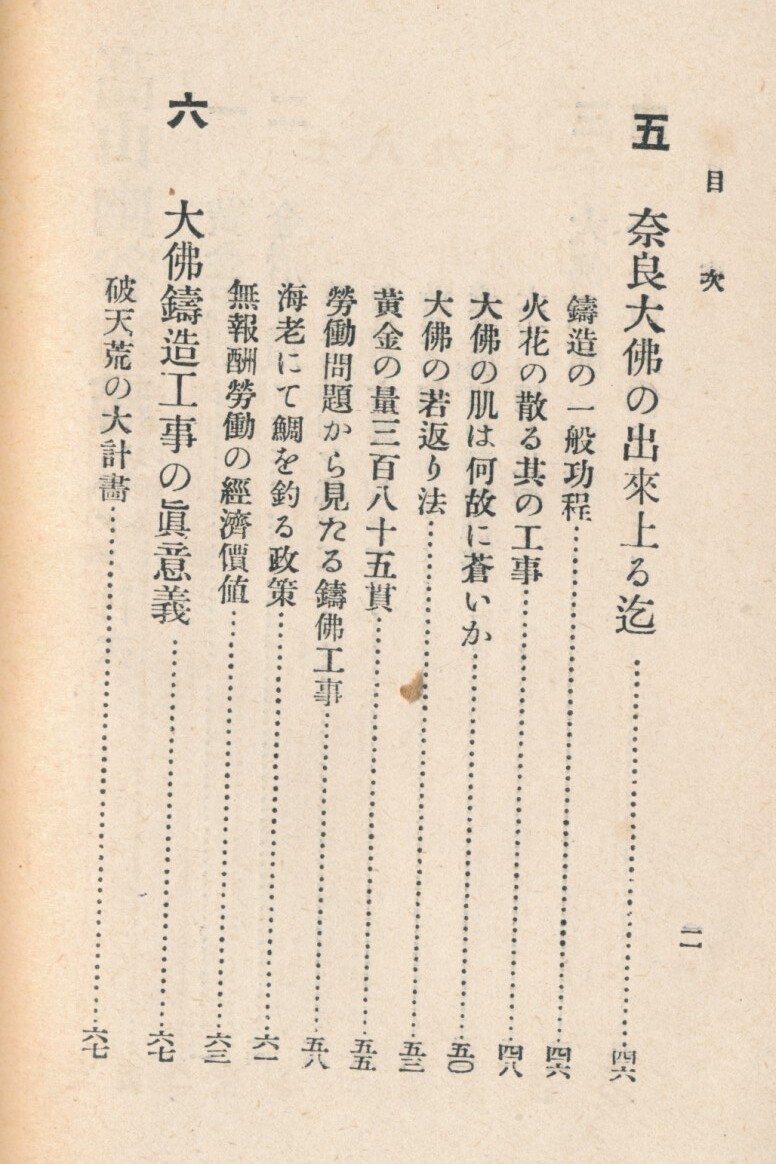 目次
二
五 奈良大佛の出來上る迄……四六
鑄造の一般功程……四六
火花の散る其の工事……四八
大佛の肌は何故に蒼いか……五〇
大佛の若返り法……五三
黄金の量三百八十五貫……五五
勞働問題から見たる鑄佛工事……五八
海老にて鯛を釣る政策……六一
無報酬勞働の經濟價値……六三
六 大佛鑄造工事の眞意義……六七
破天荒の大計畵……六七